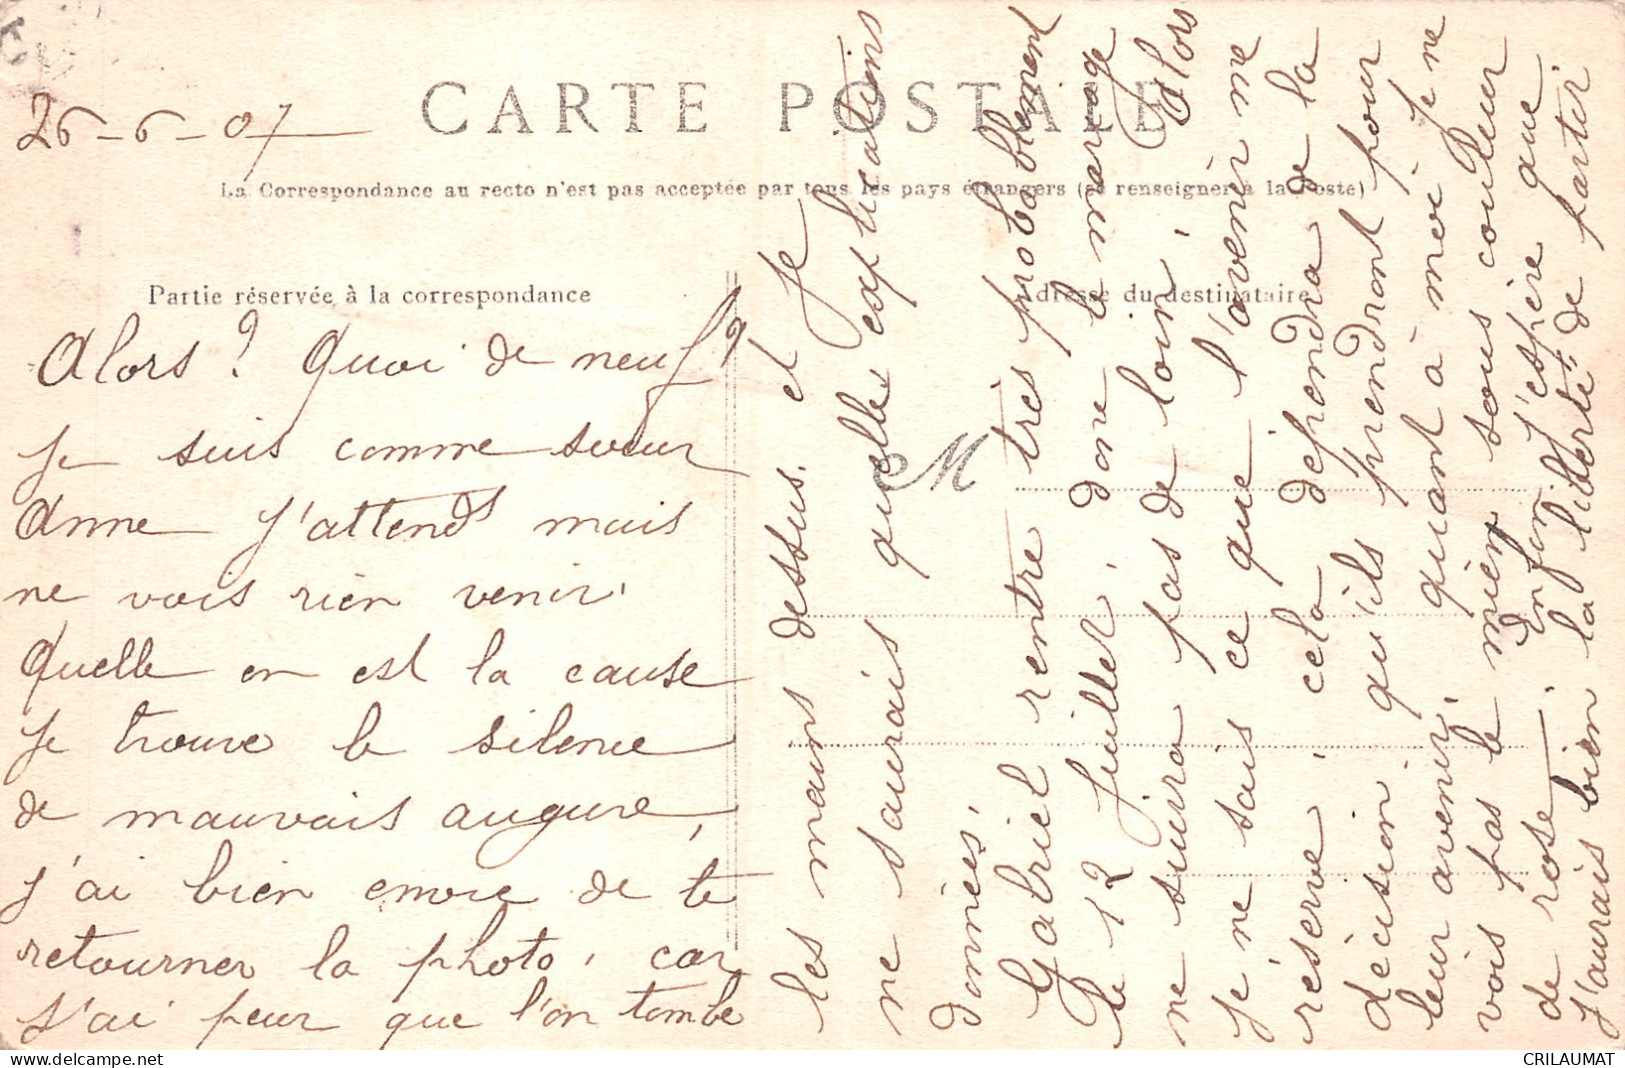 26-6-07
CARTE POSTALE
La Correspondance au recto n'est pas acceptée par tous les pays étrangers (se renseigner à la Poste)
Partie réservée à la correspondance
Adresse du destinataire
M
Alors ? Quoi de neuf ?
Je suis comme sœur
Anne J'attends mais
ne vois rien venir.
Quelle en est la cause
Je trouve le silence
de mauvais augure,
j'ai bien envie de te
retourner la photo, car
j'ai peur que l'on tombe
les mains dessus. et Je
ne saurais quelles explications
données.
Gabriel rentre très probablement
le 12 Juillet, donc le mariage
ne suivra pas de loin, Alors
Je ne sais ce que l'avenir me
réserve, cela dépendra de la
décision qu'ils prendront pour
leur avenir, quant à moi Je ne
vois pas le mien sous couleur
de rose. Enfin J'espère que
J'aurais bien la liberté de partir
CRILAUMAT